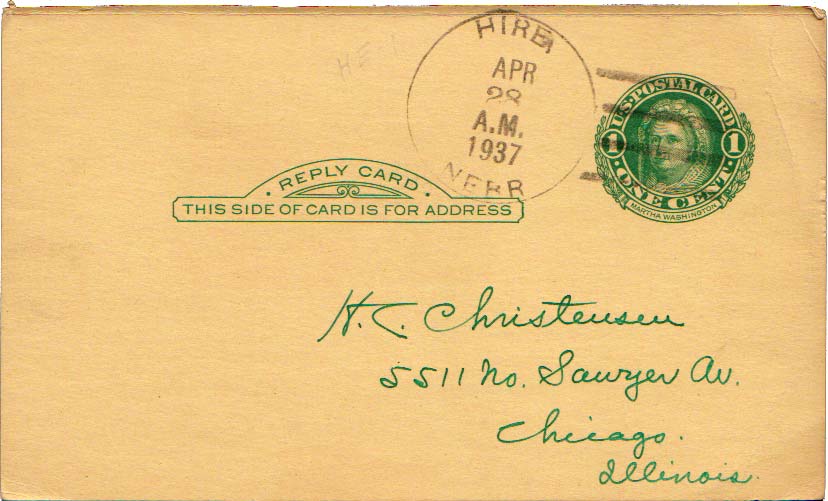 HIRE
APR
28
A.M.
1937
NEBR
U.S. POSTAL CARD
1 1
ONE CENT
MARTHA WASHINGTON
· REPLY CARD ·
THIS SIDE OF CARD IS FOR ADDRESS
H. C. Christensen
5511 No. Sawyer Av.
Chicago.
Illinois.